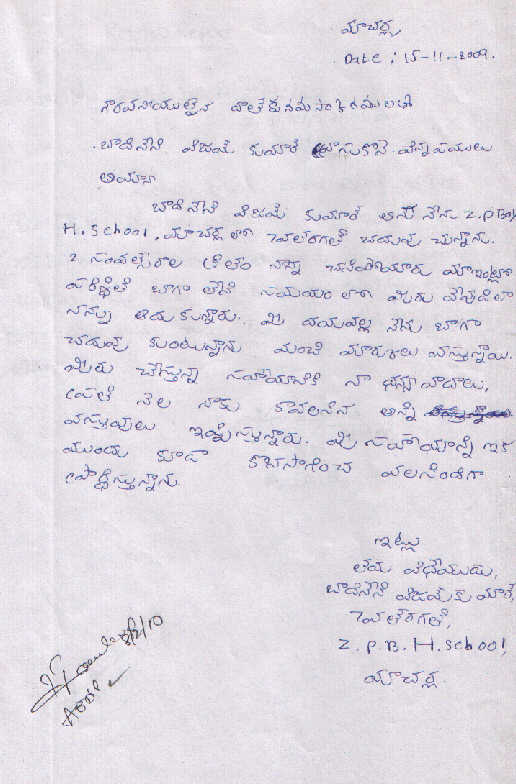 మాచర్ల,
Date : 15-11-2009.
గౌరవనీయులైన దాతలకు నమస్కారములతో
బాదినేని విజయ్ కుమార్ వ్రాసుకొనే విన్నపములు
అయ్యా
బాదినేని విజయ్ కుమార్ అను నేను Z.P Boy
H. School, మాచర్ల లో 7వ తరగతి చదువు చున్నాను.
2 సంవత్సరాల క్రితం నాన్న చనిపోయారు మా ఇంట్లో
పరిస్థితి బాగా లేని సమయం లో మీరు
నన్ను ఆదుకున్నారు. మీ దయవల్ల నేను బాగా
చదువు కుంటున్నాను మంచి మార్కులు వస్తున్నాయి.
మీరు చేస్తున్న సహాయానికి నా ధన్యవాదాలు,
ప్రతి నెల నాకు కావలసిన అన్ని
వస్తువులు ఇస్తున్నారు. మీ సహాయాన్ని ఇక
ముందు కూడా కొనసాగించ వలసిందిగా
ప్రార్థిస్తున్నాను.
ఇట్లు
తమ విధేయుడు,
బాదినేని విజయకుమార్,
7వ తరగతి,
Z. P. B. H. School,
మాచర్ల.
8/2/10